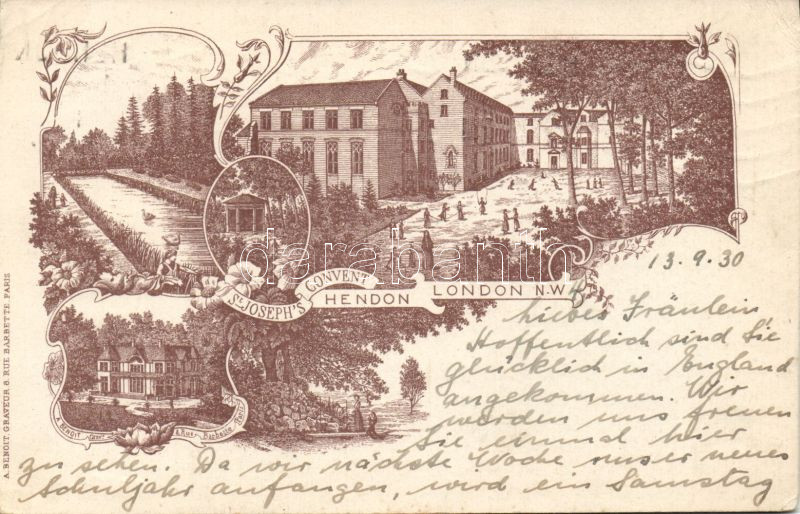 ST JOSEPH'S CONVENT HENDON LONDON N.W
13.9.30
Liebes Fräulein
Hoffentlich sind Sie
glücklich in England
angekommen. Wir
werden uns freuen
Sie einmal hier
zu sehen. Da wir nächste Woche unser neues
Schuljahr anfangen, wird ein Samstag
A. BENOIT, GRAVEUR 8. RUE BARBETTE PARIS
A. BENOIT Rue Barbette Paris
darabanth